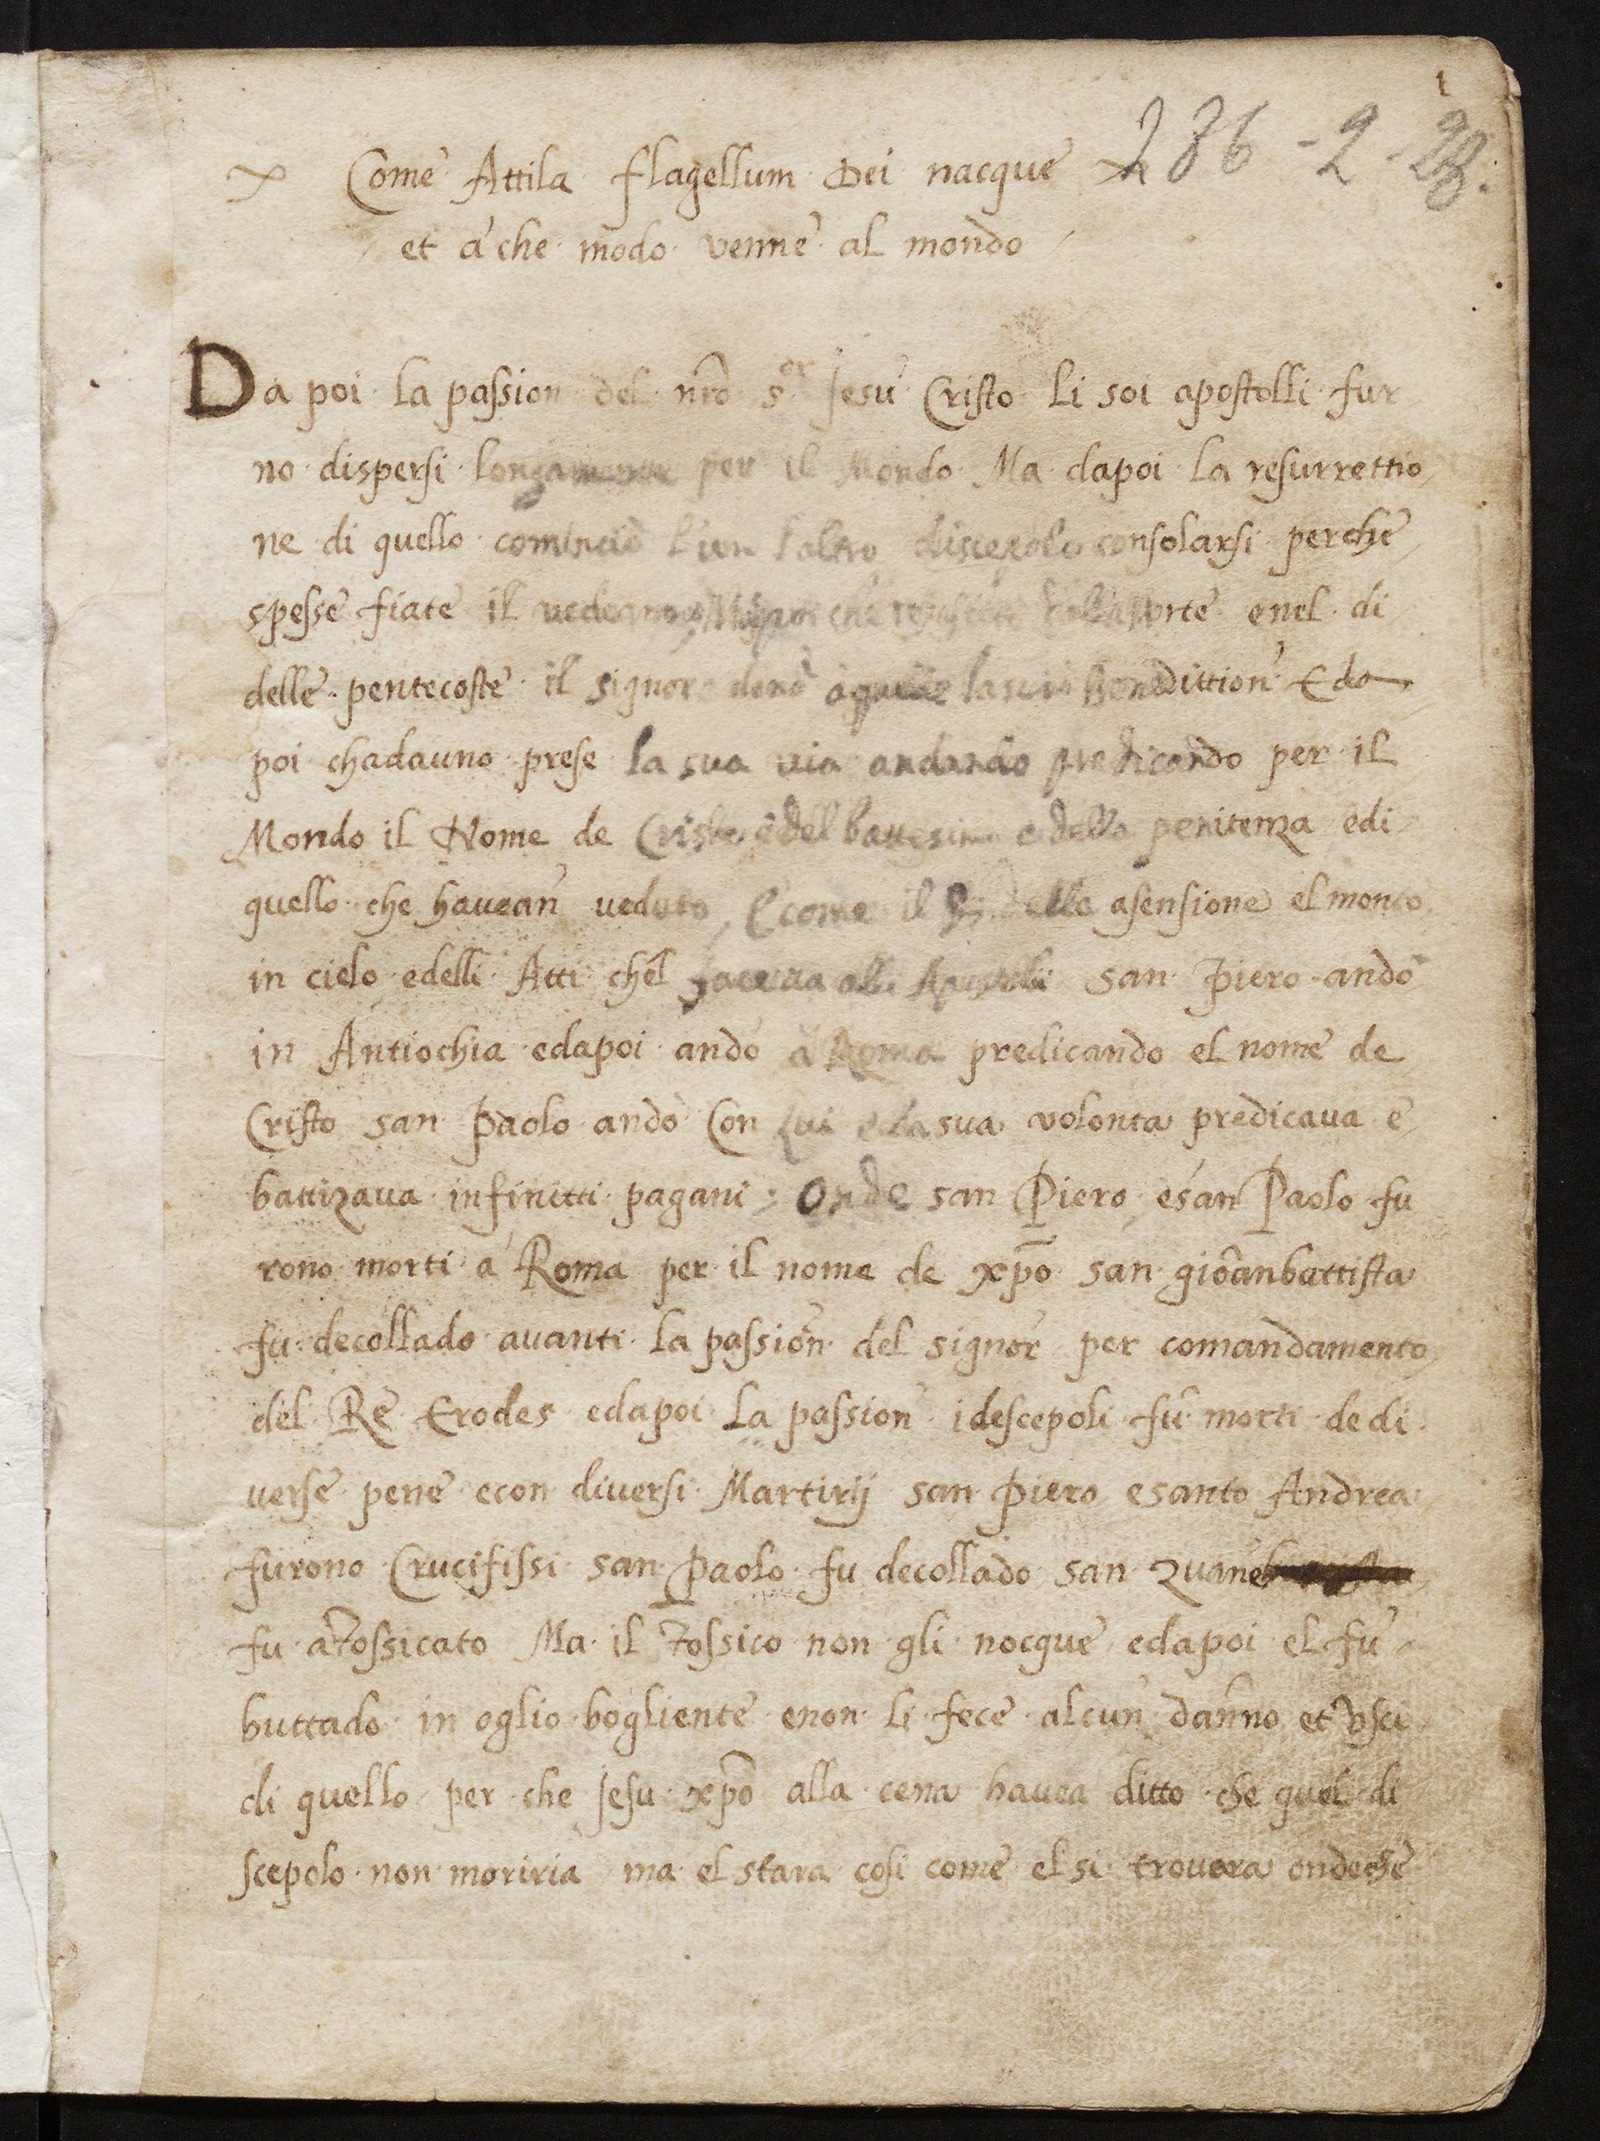 1
286 - 2 - 28.
Come Attila flagellum Dei nacque
et a che modo venne al mondo
Da poi la passion del nr̃o s.or Jesu Cristo li soi apostolli fur
no dispersi longamente per il Mondo Ma dapoi la resurrettio
ne di quello cominciò l'un l'altro discepolo consolarsi perche
spesse fiate il vedeano enel di
delle pentecoste il signore donò a quelle la sua Bendittion E da
poi chadauno prese la sua via andando predicando per il
Mondo il Nome de Cristo e del battesimo e della penitenza edi
quello che havean veduto, E come il della asensione el monto
in cielo edelli Atti chel faceva alli Apostoli san Piero andò
in Antiochia edapoi andò à Roma predicando el nome de
Cristo san Paolo andò Con lui e la sua volonta predicava e
battizava infinitti pagani; Onde san Piero esan Paolo fu
rono morti a Roma per il nome de xp̃o san gioãnbattista
fu decollado avanti la passion del signor per comandamento
del Re Erodes edapoi la passion i descepoli fu morti de di
verse pene econ diversi Martirij san Piero esanto Andrea
furono Crucifissi san Paolo fu decollado san Zuane
fu atossicato Ma il tossico non gli nocque edapoi el fu
buttado in oglio bogliente enon li fece alcun danno et vsci
di quello per che Jesu xp̃o alla cena havea ditto che quel di
scepolo non moriria ma el stara cosi come el si trovera ondeche